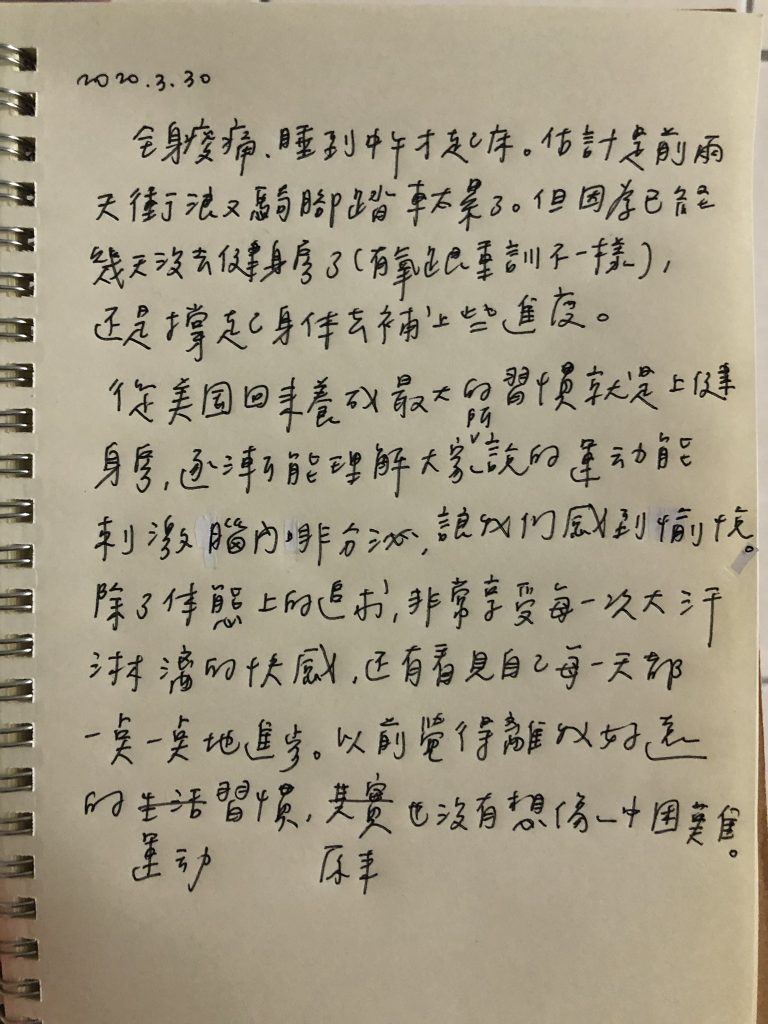 2020.3.30
全身痠痛、睡到中午才起床。估計是前兩
天衝浪又騎腳踏車太累了。但因為已經
幾天沒去健身房了(有氧跟重訓不一樣),
还是撐起身体去補上些進度。
從美国回来養成最大的習慣就是上健
身房,逐漸能理解大家所說的運动能
刺激腦內啡分泌,讓我們感到愉悅。
除了体態上的追求,非常享受每一次大汗
淋漓的快感,还有看見自己每一天都
一點一點地進步。以前覺得離我好遠
的生活習慣,其實也沒有想像中困難。
運动 原来